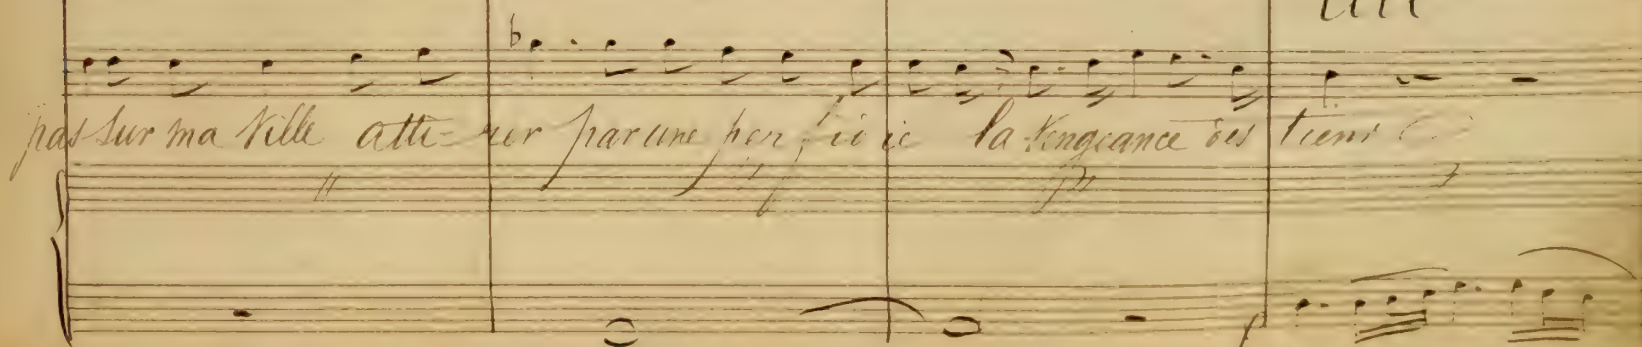 pas sur ma Ville atti-rer par une perfidie la Vengeance des tiens